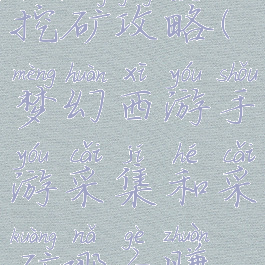 挖矿攻略(
mèng huàn xī yóu shǒu
梦幻西游手
yóu cǎi jí hé cǎi
游采集和采
kuàng nǎ gè zhuàn